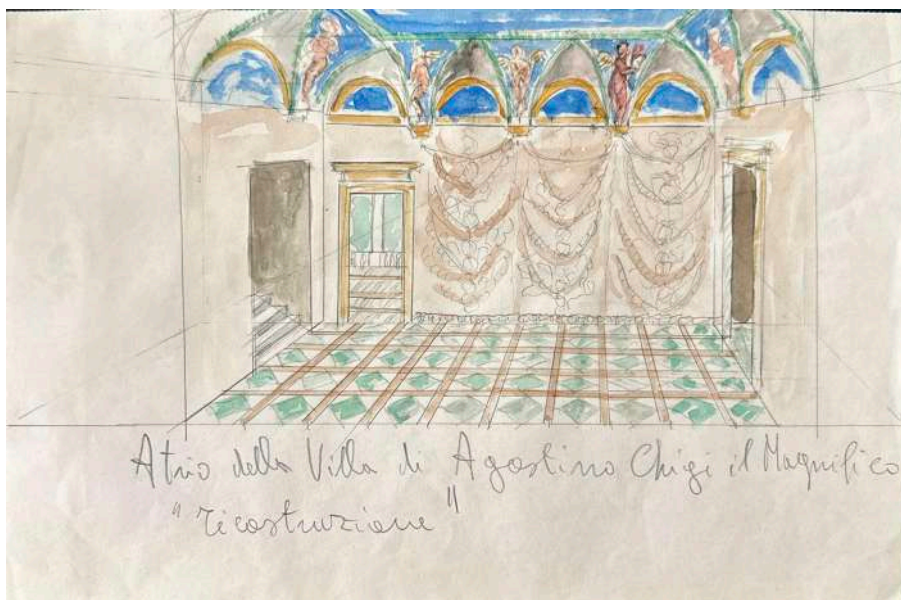 Atrio della Villa di Agostino Chigi il Magnifico
"ricostruzione"